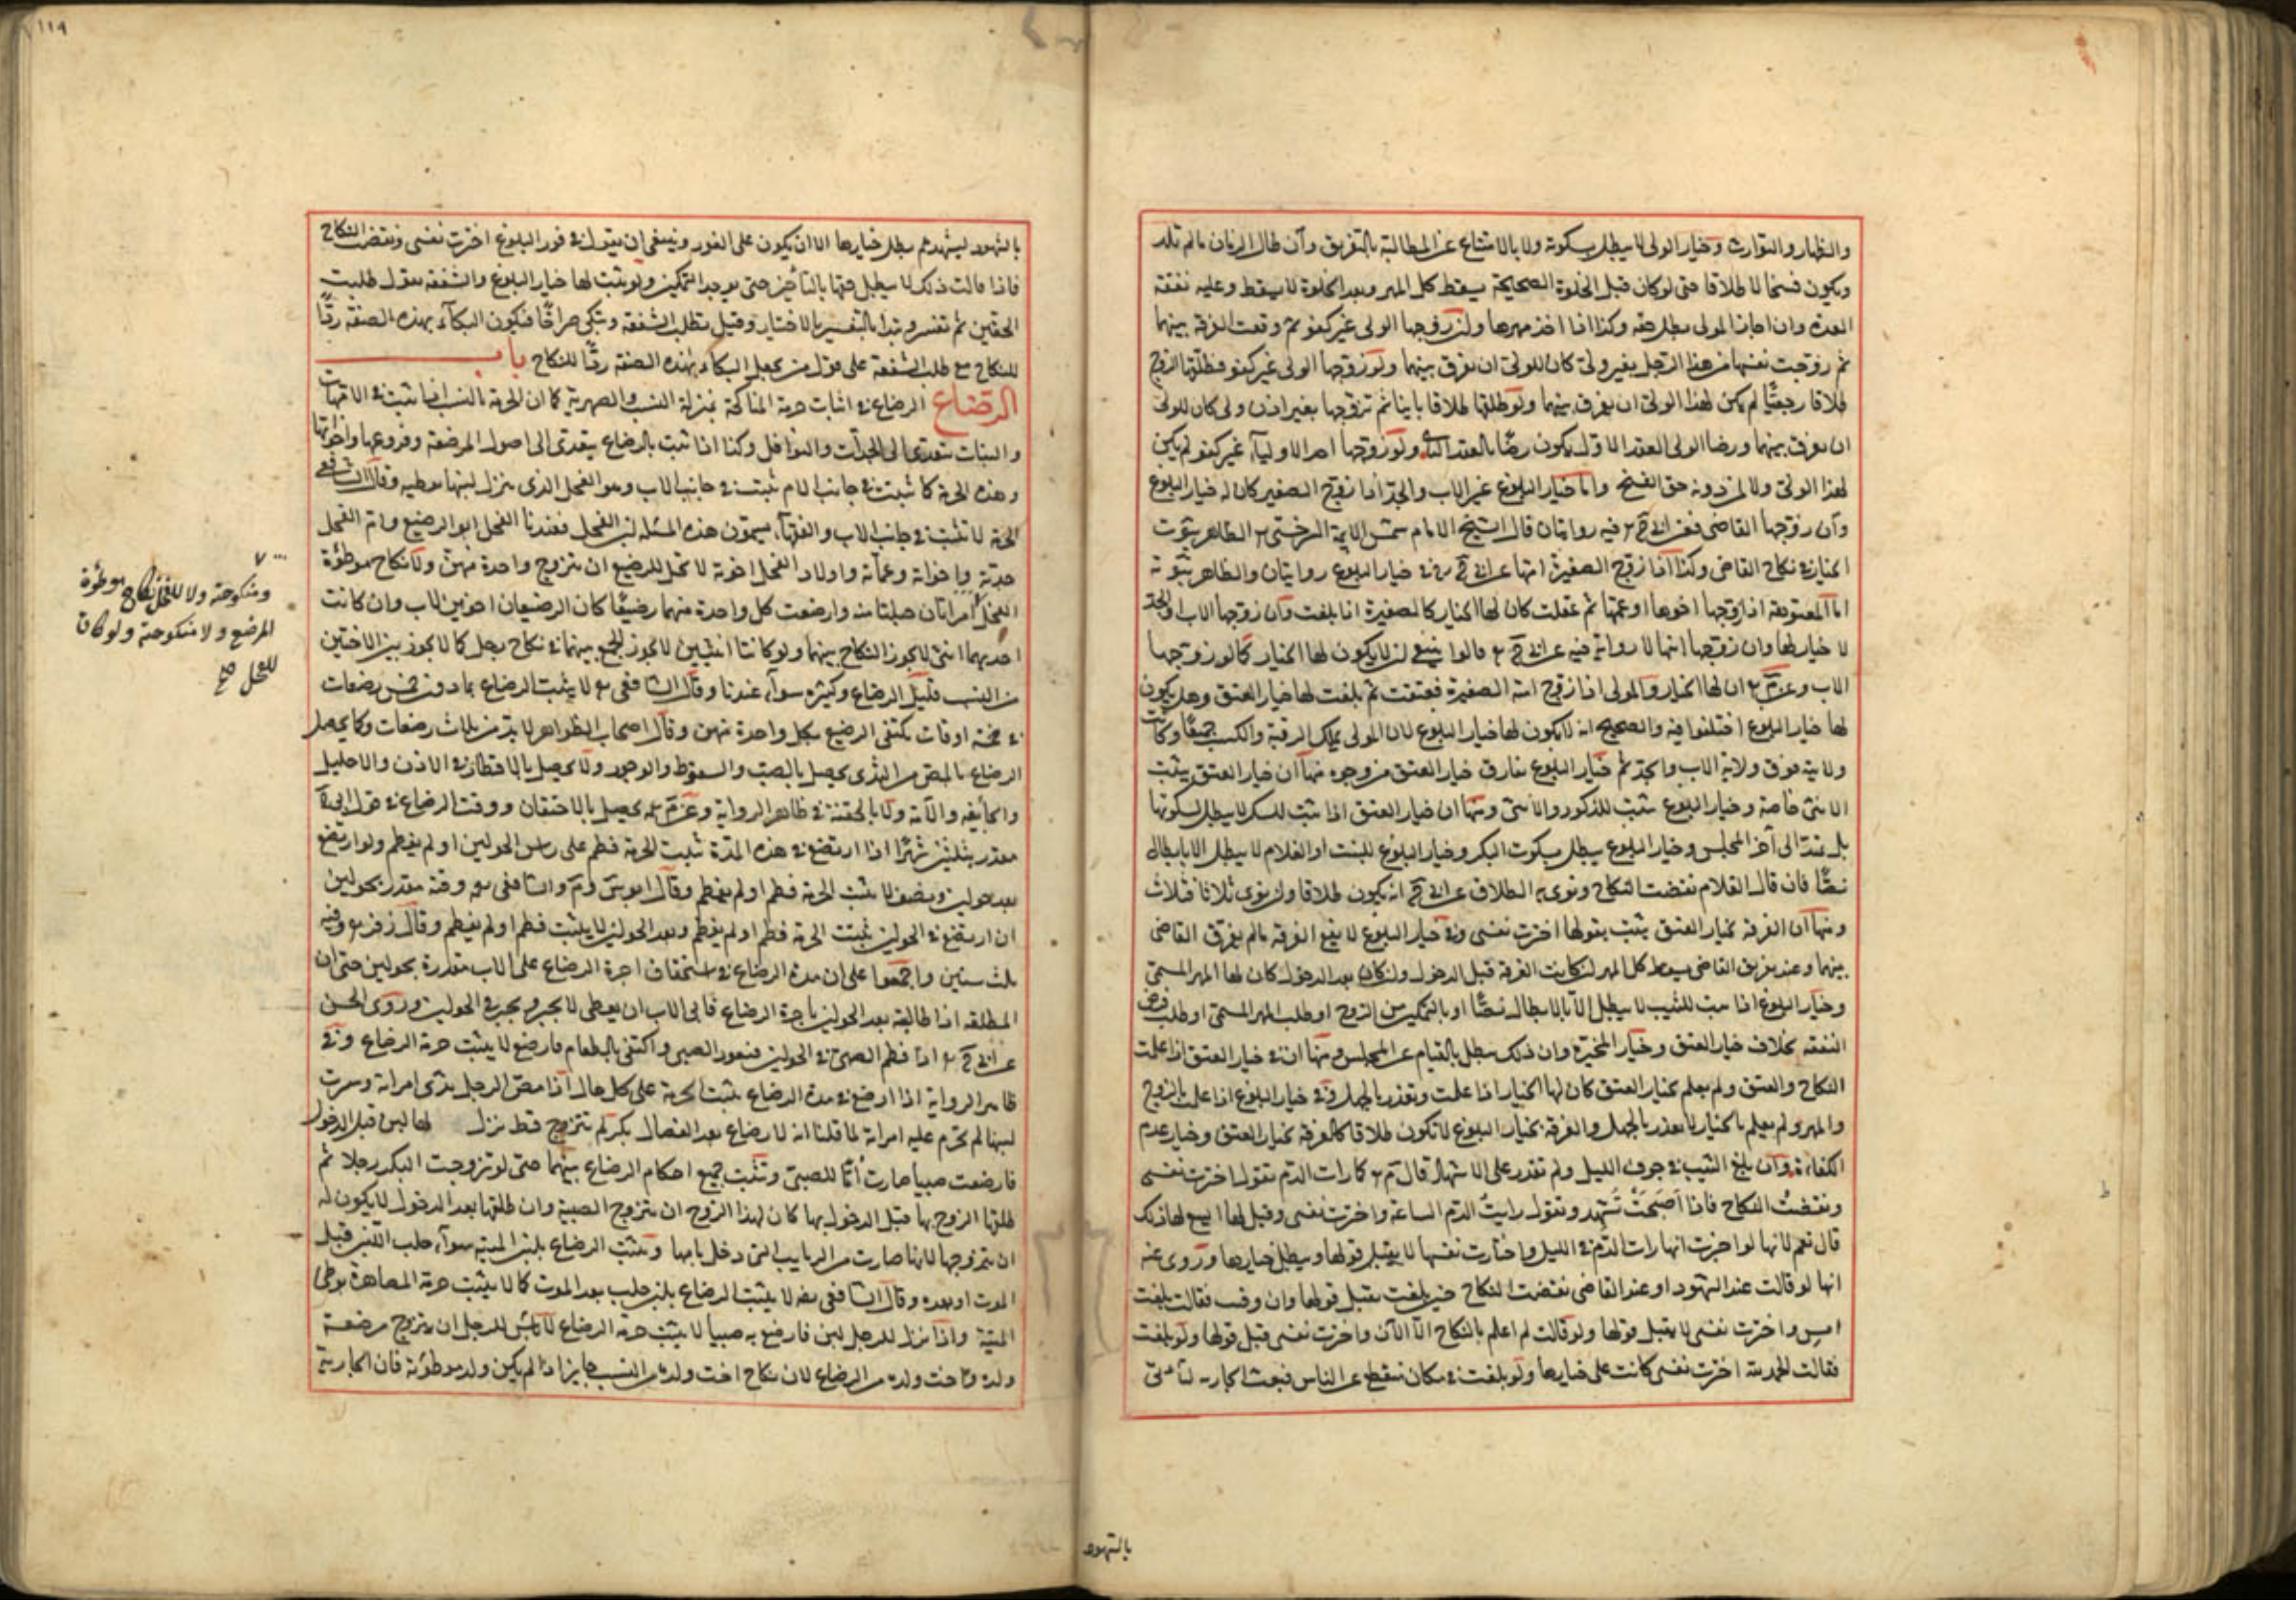 والظهار والتوارث وخيار الولى لا يبطل بسكوته ولا بالامتناع عن المطالبة بالتفريق وان طال الزمان ما لم تلد
ويكون فسخا لا طلاقا حتى لو كان قبل الخلوة الصحيحة يسقط كل المهر وبعد الخلوة لا يسقط وعليه نفقة
العدة وان اجاز الولى بطل حقه وكذا اذا اخذ مهرها ولو زوجها الولى غير كفو ثم وقعت الفرقة بينهما
ثم زوجت نفسها من هذا الرجل بغير ولى كان للولى ان يفرق بينهما ولو زوجها الولى غير كفو فطلقها الزوج
طلاقا رجعيا لم يكن لهذا الولى ان يفرق بينهما ولو طلقها طلاقا باينا ثم تزوجها بغير اذن ولى كان للولى
ان يفرق بينهما ورضا الولى العقد الاول لا يكون رضا بالعقد الثانى ولو زوجها احد الاوليآء غير كفو لم يكن
لهذا الولى ولا لمن دونه حق الفسخ واما خيار البلوغ غير الاب والجد اذا زوج الصغير كان له خيار البلوغ
وان زوجها القاضى فعن ابى ح فيه روايتان قال الشيخ الامام شمس الايمة السرخسى الظاهر ثبوت
الخيار فى نكاح القاضى وكذا اذا زوج الصغيرة امها عن ابى ح فى خيار البلوغ روايتان والظاهر ثبوته
اما المعتوهة اذا زوجها اخوها او عمها ثم عقلت كان لها الخيار كالصغيرة اذا بلغت وان زوجها الاب او الجد
لا خيار لها وان زوجها ابنها لا رواية فيه عن ابى ح قالوا ينبغى ان لا يكون لها الخيار كما لو زوجها
الاب وعن م ان لها الخيار والمولى اذا زوج امته الصغيرة فعتقت ثم بلغت لها خيار العتق وهل يكون
لها خيار البلوغ اختلفوا فيه والصحيح انه لا يكون لها خيار البلوغ لان المولى يملك الرقبة والكسب جميعا وكانت
ولايته فوق ولاية الاب والجد ثم خيار البلوغ يفارق خيار العتق من وجوه منها ان خيار العتق يثبت
الانثى خاصة وخيار البلوغ يثبت للذكور والانثى ومنها ان خيار العتق اذا ثبت للبكر لا يبطل بسكوتها
بل يمتد الى آخر المجلس وخيار البلوغ يبطل بسكوت البكر وخيار البلوغ للبنت او الغلام لا يبطل الا بابطال
نصا فان قال الغلام نقضت النكاح ونوى به الطلاق عن ابى ح انه يكون طلاقا وان نوى ثلاثا فثلاث
ومنها ان الفرقة بخيار العتق يثبت بقولها اخترت نفسى وفى خيار البلوغ لا يقع الفرقة ما لم يفرق القاضى
بينهما وعند تفريق القاضى يسقط كل المهر ان كانت الفرقة قبل الدخول وان كان بعد الدخول كان لها المهر المسمى
وخيار البلوغ اذا ثبت للثيب لا يبطل الا بالابطال نصا او بالتمكين من الزوج او طلب المهر المسمى او طلب فرض
النفقة بخلاف خيار العتق وخيار المخيرة وان ذلك يبطل بالقيام عن المجلس ومنها ان فى خيار العتق اذا علمت
النكاح والعتق ولم يعلم بخيار العتق كان لها الخيار اذا علمت وتعذر بالجهل وفى خيار البلوغ اذا علمت بالزوج
والمهر ولم يعلم بالخيار لا يعذر بالجهل والفرقة بخيار البلوغ لا تكون طلاقا كالفرقة بخيار العتق وخيار عدم
الكفاءة وان بلغ الثيب فى جوف الليل ولم تقدر على الاشهاد قال م كما رات الدم تقول اخترت نفسى
ونقضت النكاح فاذا اصبحت تشهد وتقول رايت الدم الساعة واخترت نفسى وقيل لها ايسع لها ذلك
قال نعم لانها لو اخبرت انها رات الدم فى الليل واختارت نفسها لا يقبل قولها ويبطل خيارها وروى عنه
انها لو قالت عند الشهود او عند القاضى نقضت النكاح حين بلغت يقبل قولها وان وقت فقالت بلغت
امس واخترت نفسى لا يقبل قولها ولو قالت لم اعلم بالنكاح الا الآن واخترت نفسى قبل قولها ولو بلغت
فقالت الحمد لله اخترت نفسى كانت على خيارها ولو بلغت فى مكان منقطع عن الناس فبعثت الجارية لتأتى
بالشهود
١١٩
بالشهود ليشهدهم بطل خيارها الا ان يكون على الفور وينبغى ان يقول فى فور البلوغ اخترت نفسى ونقضت النكاح
فاذا قالت ذلك لا يبطل حقها بالتأخير حتى يوجد التمكين ولو ثبت لها خيار البلوغ والشفعة تقول طلبت
الحقين ثم تفسر وتبدا بالتفسير بالاختيار وقيل تطلب الشفعة وتبكى صراخا فيكون البكآء بهذه الصفة ردا
للنكاح مع طلب الشفعة على قول من يجعل البكاء بهذه الصفة ردا للنكاح باب
الرضاع الرضاع فى اثبات حرمة المناكحة بمنزلة النسب والصهرية كما ان الحرمة بالنسب اذا ثبتت فى الامهات
والبنات تتعدى الى الجدات والنوافل وكذا اذا ثبت بالرضاع يتعدى الى اصول المرضعة وفروعها واخواتها
وهذه الحرمة كما تثبت فى جانب الام تثبت فى جانب الاب وهو الفحل الذى ينزل لبنها بوطيه وقال الشافعى
الحرمة لا تثبت فى جانب الاب والفقهآء يسمون هذه المسئلة لبن الفحل فعندنا الفحل ابو الرضيع وام الفحل
جدته واخواته وعماته واولاد الفحل اخوته لا تحل للرضيع ان يتزوج واحدة منهن ولا نكاح موطؤة
الفحل امراتان حبلتا منه وارضعت كل واحدة منهما رضيعا كان الرضيعان اخوين لاب وان كانت
احديهما انثى لا يجوز النكاح بينهما ولو كانتا انثيين لا يجوز الجمع بينهما فى نكاح رجل كما لا يجوز بين الاختين
من النسب قليل الرضاع وكثيره سوآء عندنا وقال الشافعى لا يثبت الرضاع بما دون خمس رضعات
فى خمسة اوقات يكتفى الرضيع بكل واحدة منهن وقال اصحاب الظواهر لا بد من ثلاث رضعات وكما يحصل
الرضاع بالمص من الثدى يحصل بالصب والسعوط والوجور ولا يحصل بالاقطار فى الاذن والاحليل
والجائفة والآمة ولا بالحقنة فى ظاهر الرواية وعن م يحصل بالاحتقان ووقت الرضاع فى قول ابى ح
مقدر بثلثين شهرا اذا ارتضع فى هذه المدة تثبت الحرمة فطم على راس الحولين او لم يفطم ولو ارتضع
بعد حولين ونصف لا يثبت الحرمة فطم او لم يفطم وقال ابو س وم والشافعى وقته مقدر بحولين
ان ارتضع فى الحولين ثبتت الحرمة فطم او لم يفطم وبعد الحولين لا يثبت فطم او لم يفطم وقال زفر وقته
ثلث سنين واجمعوا على ان مدة الرضاع فى استحقاق اجرة الرضاع على الاب مقدرة بحولين حتى ان
المطلقة اذا طالبته بعد الحولين باجرة الرضاع فابى الاب ان يعطى لا يجبر ويجبر فى الحولين وروى الحسن
عن ابى ح اذا فطم الصبى فى الحولين فتعود الصبى واكتفى بالطعام فارضع لا يثبت حرمة الرضاع وفى
ظاهر الرواية اذا ارضع فى مدة الرضاع يثبت الحرمة على كل حال اذا مص الرجل ثدى امراته وشرب
لبنها لم تحرم عليه امراته لما قلنا انه لا رضاع بعد الفصال بكر لم تتزوج قط نزل لها لبن قبل الدخول
فارضعت صبيا صارت أما للصبى وتثبت جميع احكام الرضاع بينهما حتى لو تزوجت البكر رجلا ثم
طلقها الزوج بها قبل الدخول بها كان لهذا الزوج ان يتزوج الصبية وان طلقها بعد الدخول لا يكون له
ان يتزوجها لانها صارت من الربايب التى دخل بامها ويثبت الرضاع بلبن الميتة سوآء حلب اللبن قبل
الموت او بعده وقال الشافعى لا يثبت الرضاع بلبن حلب بعد الموت كما لا يثبت حرمة المصاهرة بوطى
الميتة واذا نزل للرجل لبن فارضع به صبيا لا يثبت حرمة الرضاع لا بأس للرجل ان يتزوج مرضعة
ولده واخت ولده من الرضاع لان نكاح اخت ولده من النسب جايز اذا لم يكن ولد موطؤته فان الجارية
ومنكوحته ولا للفحل نكاح موطؤة
المرضع ولا منكوحته ولو كان
للفحل صح